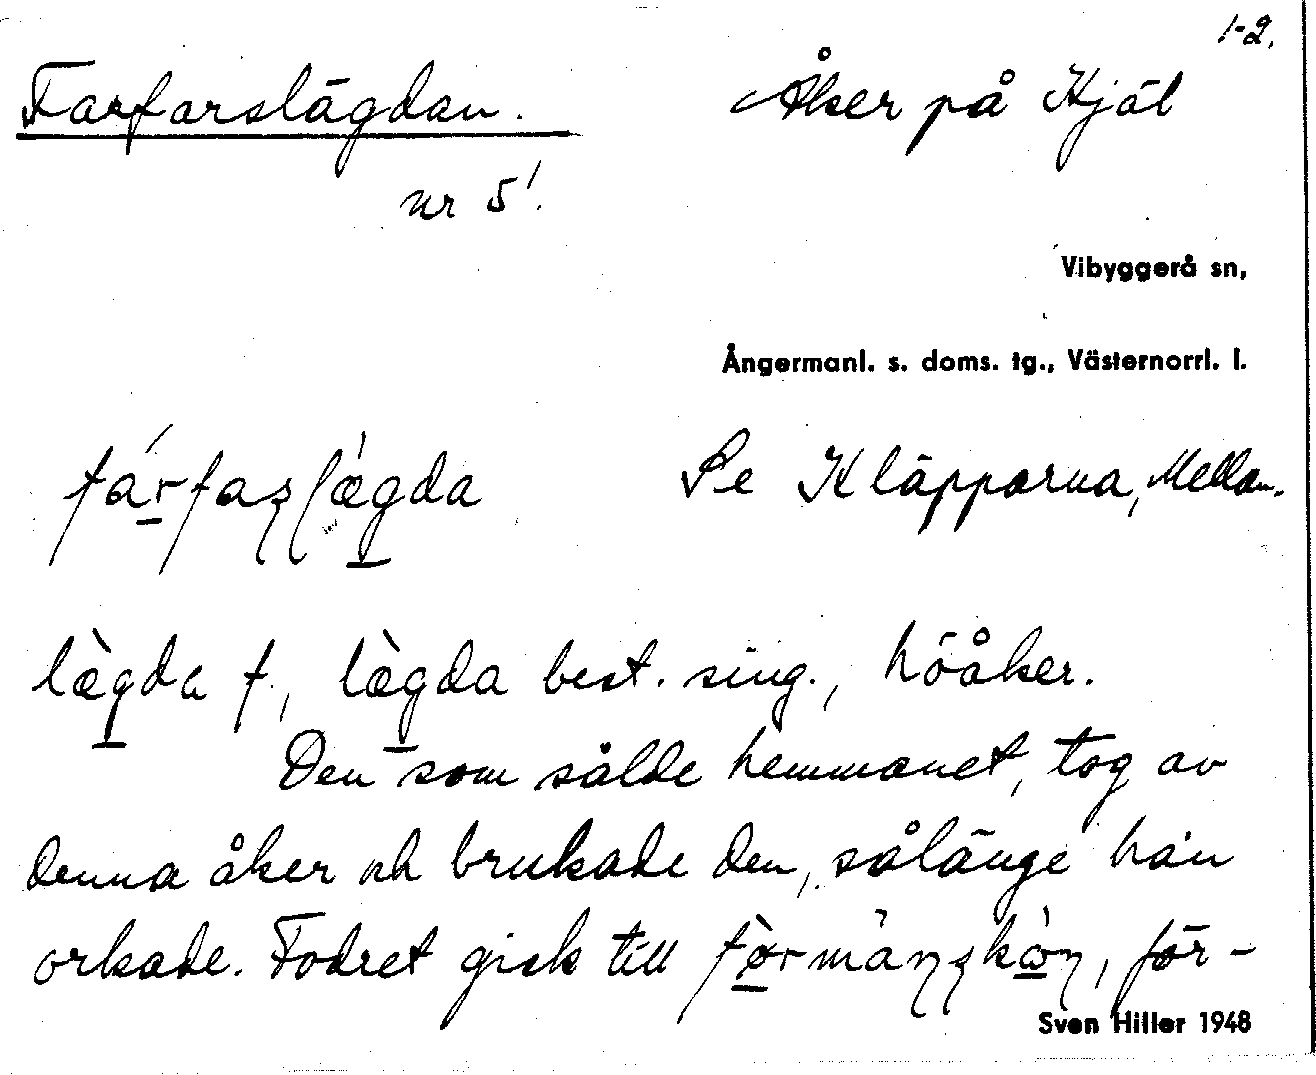 1-2.
Farfarslägdan. Åker på Kjäl
nr 5!.
Vibyggerå sn,
Ångermanl. s. doms. tg., Västernorrl. l.
Se Kläpparna, Mellan-
læ̀gda f., læ̀gda best. sing., höåker.
Den som sålde hemmanet, tog av
denna åker och brukade den, sålänge han
orkade. Fodret gick till för-
Sven Hiller 1948